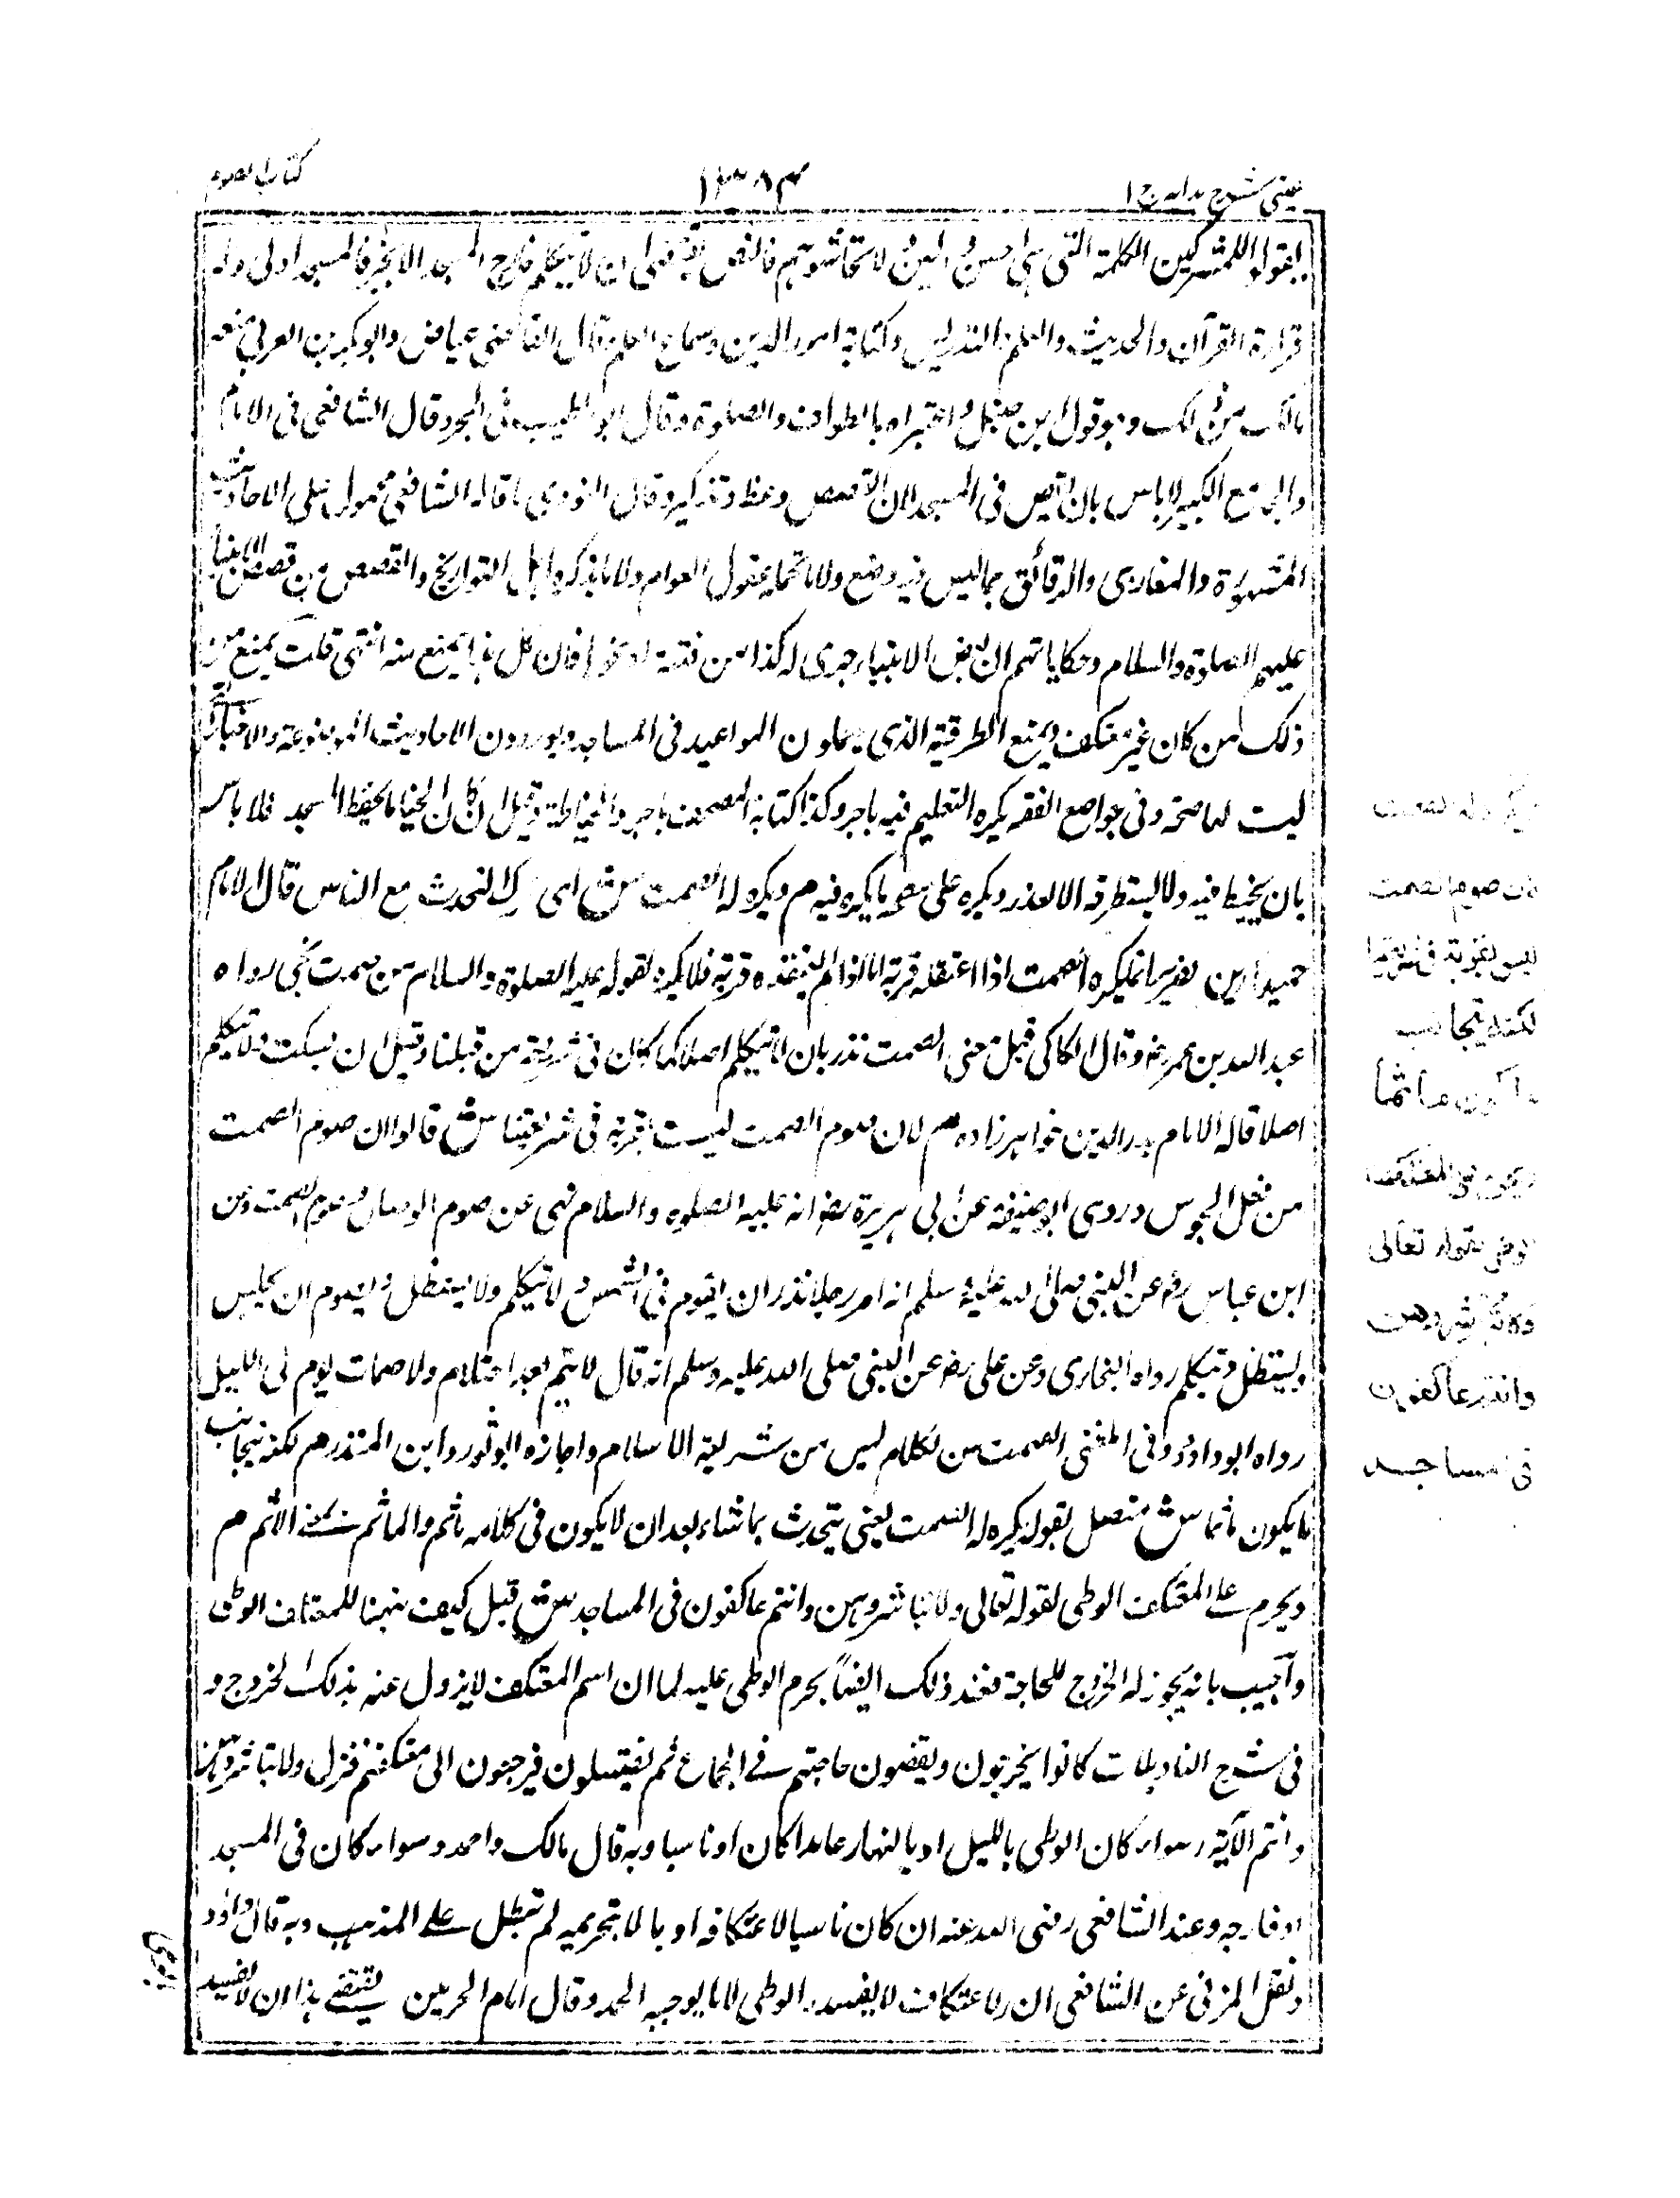 عيني شرح هدايه ج ١
١٣٨٣
كتاب الصوم
يقولوا للمشركين الكلمة التي هي احسن والين لا تخاشنوهم فالنص يقتضي ان لا يتكلم خارج المسجد الا بخير فالمسجد اولى وله
قراءة القرآن والحديث والعلم والتدريس وكتابة امور الدين وسماع العلم وقال القاضي عياض وابوبكر بن العربي منعه
مالك من ذلك وهو قول ابن حنبل واعتبراه بالطواف والصلوة وقال ابو الطيب في المجرد قال الشافعي في الامام
والجامع الكبير لا باس بان يقص في المسجد لان القصص وعظ وتذكير وقال النووي ما قاله الشافعي محمول على الاحاديث
المشهورة والمغازي والرقائق مما ليس فيه وضع ولا ما تحمله عقول العوام ولا ما يذكره اهل التواريخ والقصص من قصص الانبياء
عليهم الصلوة والسلام وحكاياتهم ان بعض الانبياء جرى له كذا من فتنة او نحوها فان كل هذا يمنع منه انتهى قلت يمنع من
ذلك لمن كان غير معتكف ويمنع الطرقية الذي يعملون المواعيد في المساجد ويوردون الاحاديث الموضوعة والاخبار التي
ليست لها صحة وفي جوامع الفقه يكره التعليم فيه باجر وكذا كتابة المصحف باجر والخياطة وقيل ان كان الخياط يحفظ المسجد فلا باس
بان يخيط فيه ولا يستطرقه الا لعذر ويكره على سطحه ما يكره فيه م ويكره له الصمت ش اي ترك التحدث مع الناس قال الامام
حميد الدين الضرير انما يكره الصمت اذا اعتقده قربة اما اذا لم يعتقده قربة فلا يكره لقوله عليه الصلوة والسلام من صمت نجى رواه
عبد الله بن عمر رضـ وقال الكاكي قيل معنى الصمت نذر بان لا يتكلم اصلا كما كان في شريعة من قبلنا وقيل ان يسكت ولا يتكلم
اصلا قاله الامام بدر الدين خواهرزاده م لان صوم الصمت ليست بقربة في شريعتنا ش قالوا ان صوم الصمت
من فعل المجوس وروى ابو حنيفة عن ابي هريرة رضـ انه عليه الصلوة والسلام نهى عن صوم الوصال وصوم الصمت وعن
ابن عباس رضـ عن النبي صلى الله عليه وسلم انه امر رجلا نذر ان يقوم في الشمس لا يتكلم ولا يستظل ويصوم ان يجلس
ويستظل ويتكلم رواه البخاري وعن علي رضـ عن النبي صلى الله عليه وسلم انه قال لا يتم بعد احتلام ولا صمات يوم الى الليل
رواه ابو داود وفي المغني الصمت من الكلام ليس من شريعة الاسلام واجازه ابو ثور وابن المنذر م لكنه يتجانب
ما يكون مأثما ش متصل بقوله يكره له الصمت يعني يتحدث بما شاء بعد ان لا يكون في كلامه مأثم والمأثم بمعنى الاثم م
ويحرم على المعتكف الوطي لقوله تعالى ولا تباشروهن وانتم عاكفون في المساجد ش قيل كيف يتهيأ للمعتكف الوطي
واجيب بانه يجوز له الخروج للحاجة فعند ذلك ايضاً يحرم الوطي عليه لما ان اسم المعتكف لا يزول عنه بذلك الخروج و
في شرح التاويلات كانوا يخرجون ويقضون حاجتهم في الجماع ثم يغتسلون فيرجعون الى معتكفهم فنزل ولا تباشروهن
وانتم الآية وسواء كان الوطي بالليل او بالنهار عامدا كان او ناسيا وبه قال مالك واحمد وسواء كان في المسجد
او خارجه وعند الشافعي رضي الله عنه ان كان ناسيا لاعتكافه او جاهلا بتحريمه لم تبطل على المذهب وبه قال داود
ونقل المزني عن الشافعي ان الاعتكاف لا يفسده الوطي الا ما يوجب الحد وقال امام الحرمين يقتضي هذا ان لا يفسد
ويكره له الصمت
لان صوم الصمت
ليس بقربة في شريعتنا
لكنه يتجانب
ما يكون مأثما
ويحرم على المعتكف
الوطي لقوله تعالى
ولا تباشروهن
وانتم عاكفون
في المساجد